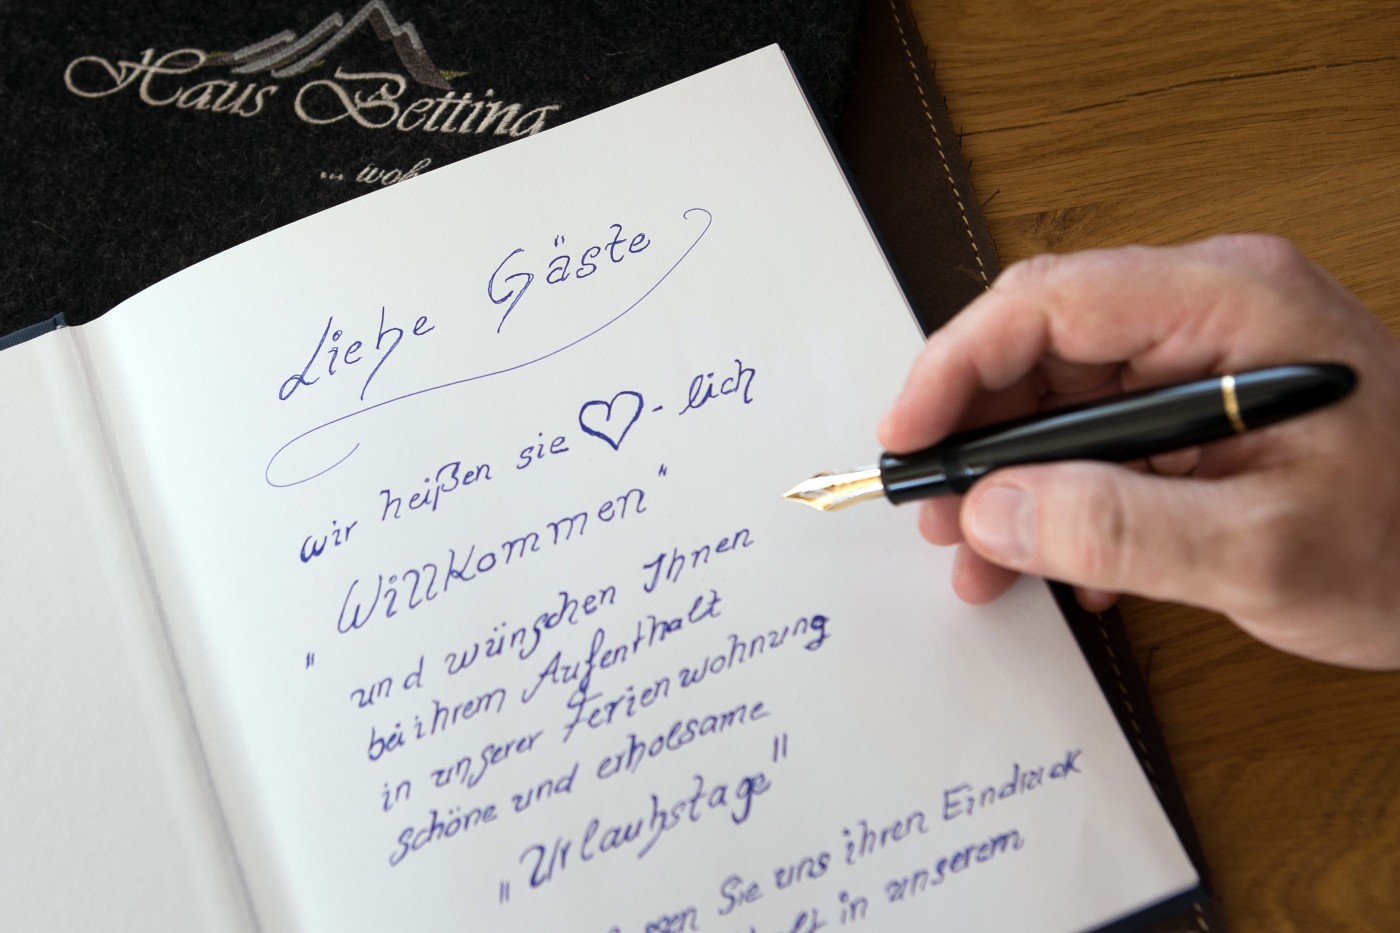 Haus Bettina
... woh
Liebe Gäste
wir heißen sie ♡-lich
"Willkommen"
und wünschen Ihnen
bei ihrem Aufenthalt
in unserer Ferienwohnung
schöne und erholsame
"Urlaubstage"
Sie uns ihren Eindruck
in unserem